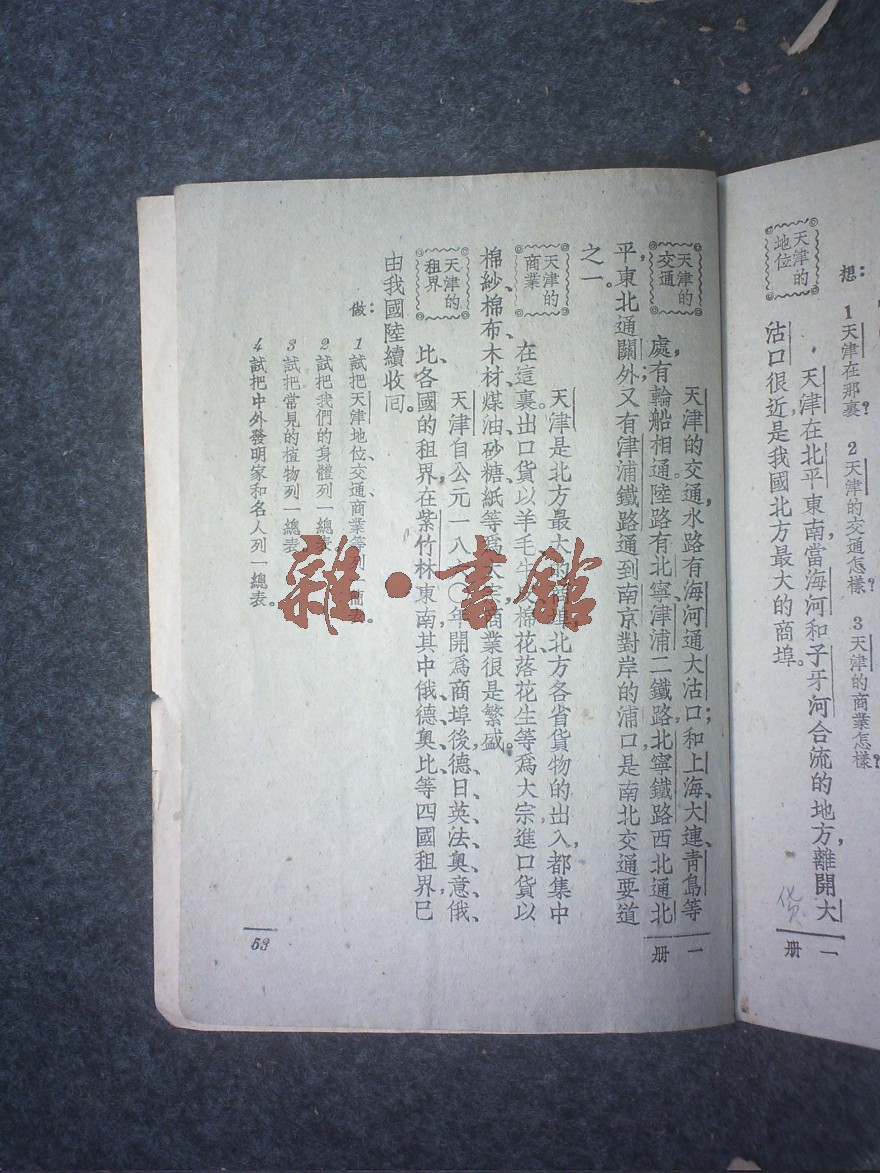 想：
1 天津在那裏？ 2 天津的交通怎樣？ 3 天津的商業怎樣？
天津的
地位
天津在北平東南，當海河和子牙河合流的地方，離開大
沽口很近，是我國北方最大的商埠。
貨
一
册
天津的
交通
天津的交通，水路有海河通大沽口；和上海、大連、青島等
處，有輪船相通。陸路有北寧、津浦二鐵路，北寧鐵路西北通北
平，東北通關外；又有津浦鐵路通到南京對岸的浦口，是南北交通要道
之一。
天津的
商業
天津是北方最大的商埠，北方各省貨物的出入，都集中
在這裏。出口貨以羊毛、棉花、落花生等爲大宗，進口貨以
棉紗、棉布、木材、煤油、砂糖、紙等爲大宗，商業很是繁盛。
天津的
租界
天津自公元一八六〇年開爲商埠後，德、日、英、法、奥、意、俄、
比各國的租界，在紫竹林東南，其中俄、德、奥、比等四國租界，已
由我國陸續收回。
做：
1 試把天津地位、交通、商業等列一簡表。
2 試把我們的身體列一總表。
3 試把常見的植物列一總表。
4 試把中外發明家和名人列一總表。
一
册
53
雜·書館